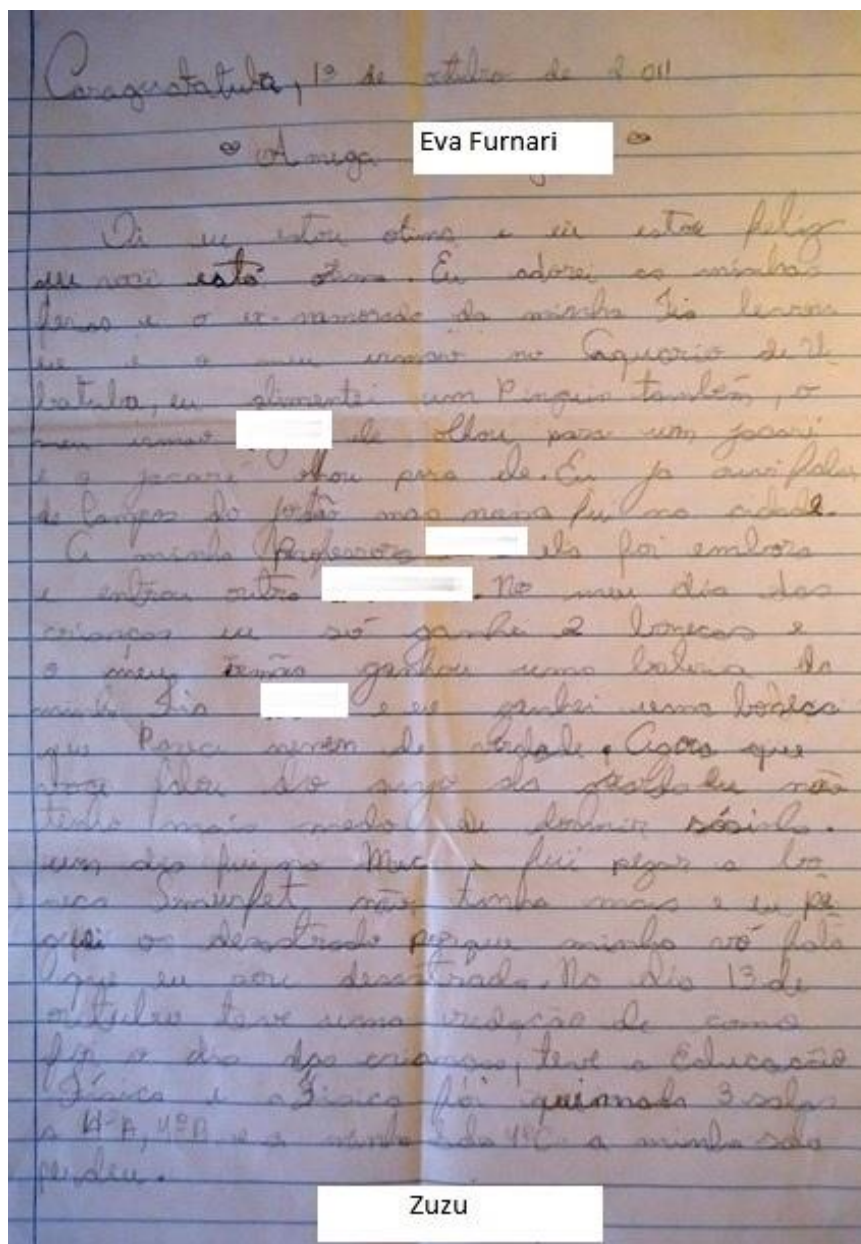 Caraguatatuba, 1º de outubro de 2011
Amiga Eva Furnari
Oi eu estou otima e eu estou feliz
que você está otima. Eu adorei as minhas
ferias e o ex-namorado da minha Tia levou
eu e o meu irmão no Caquario de U
batuba, eu alimentei um Pinguin também, o
meu irmão ele olhou para um jacaré
e o jacaré olhou para ele. Eu ja ouvi falar
de Campos do jordão mas nunca fui na cidade.
A minha Professora ela foi embora
e entrou outra . No meu dia das
crianças eu só ganhei 2 bonecas e
o meu irmão ganhou uma da
minha Tia e eu ganhei uma boneca
que Parece nenem de verdade. Agora que
voce falou do anjo da eu não
tenho mais medo de dormir sósinha.
um dia fui no Mec e fui pegar a bo
neca Smurfet, não tinha mais e eu pe
guei os desastrado porque minha vó fala
que eu sou desastrada. No dia 13 de
outubro teve uma redação de como
foi o dia das crianças, teve a Educação
Fisica e a Fisica foi queimada 3 salas
a 4ºA, 4ºB e a minha é da 4ºC a minha sala
perdeu.
Zuzu